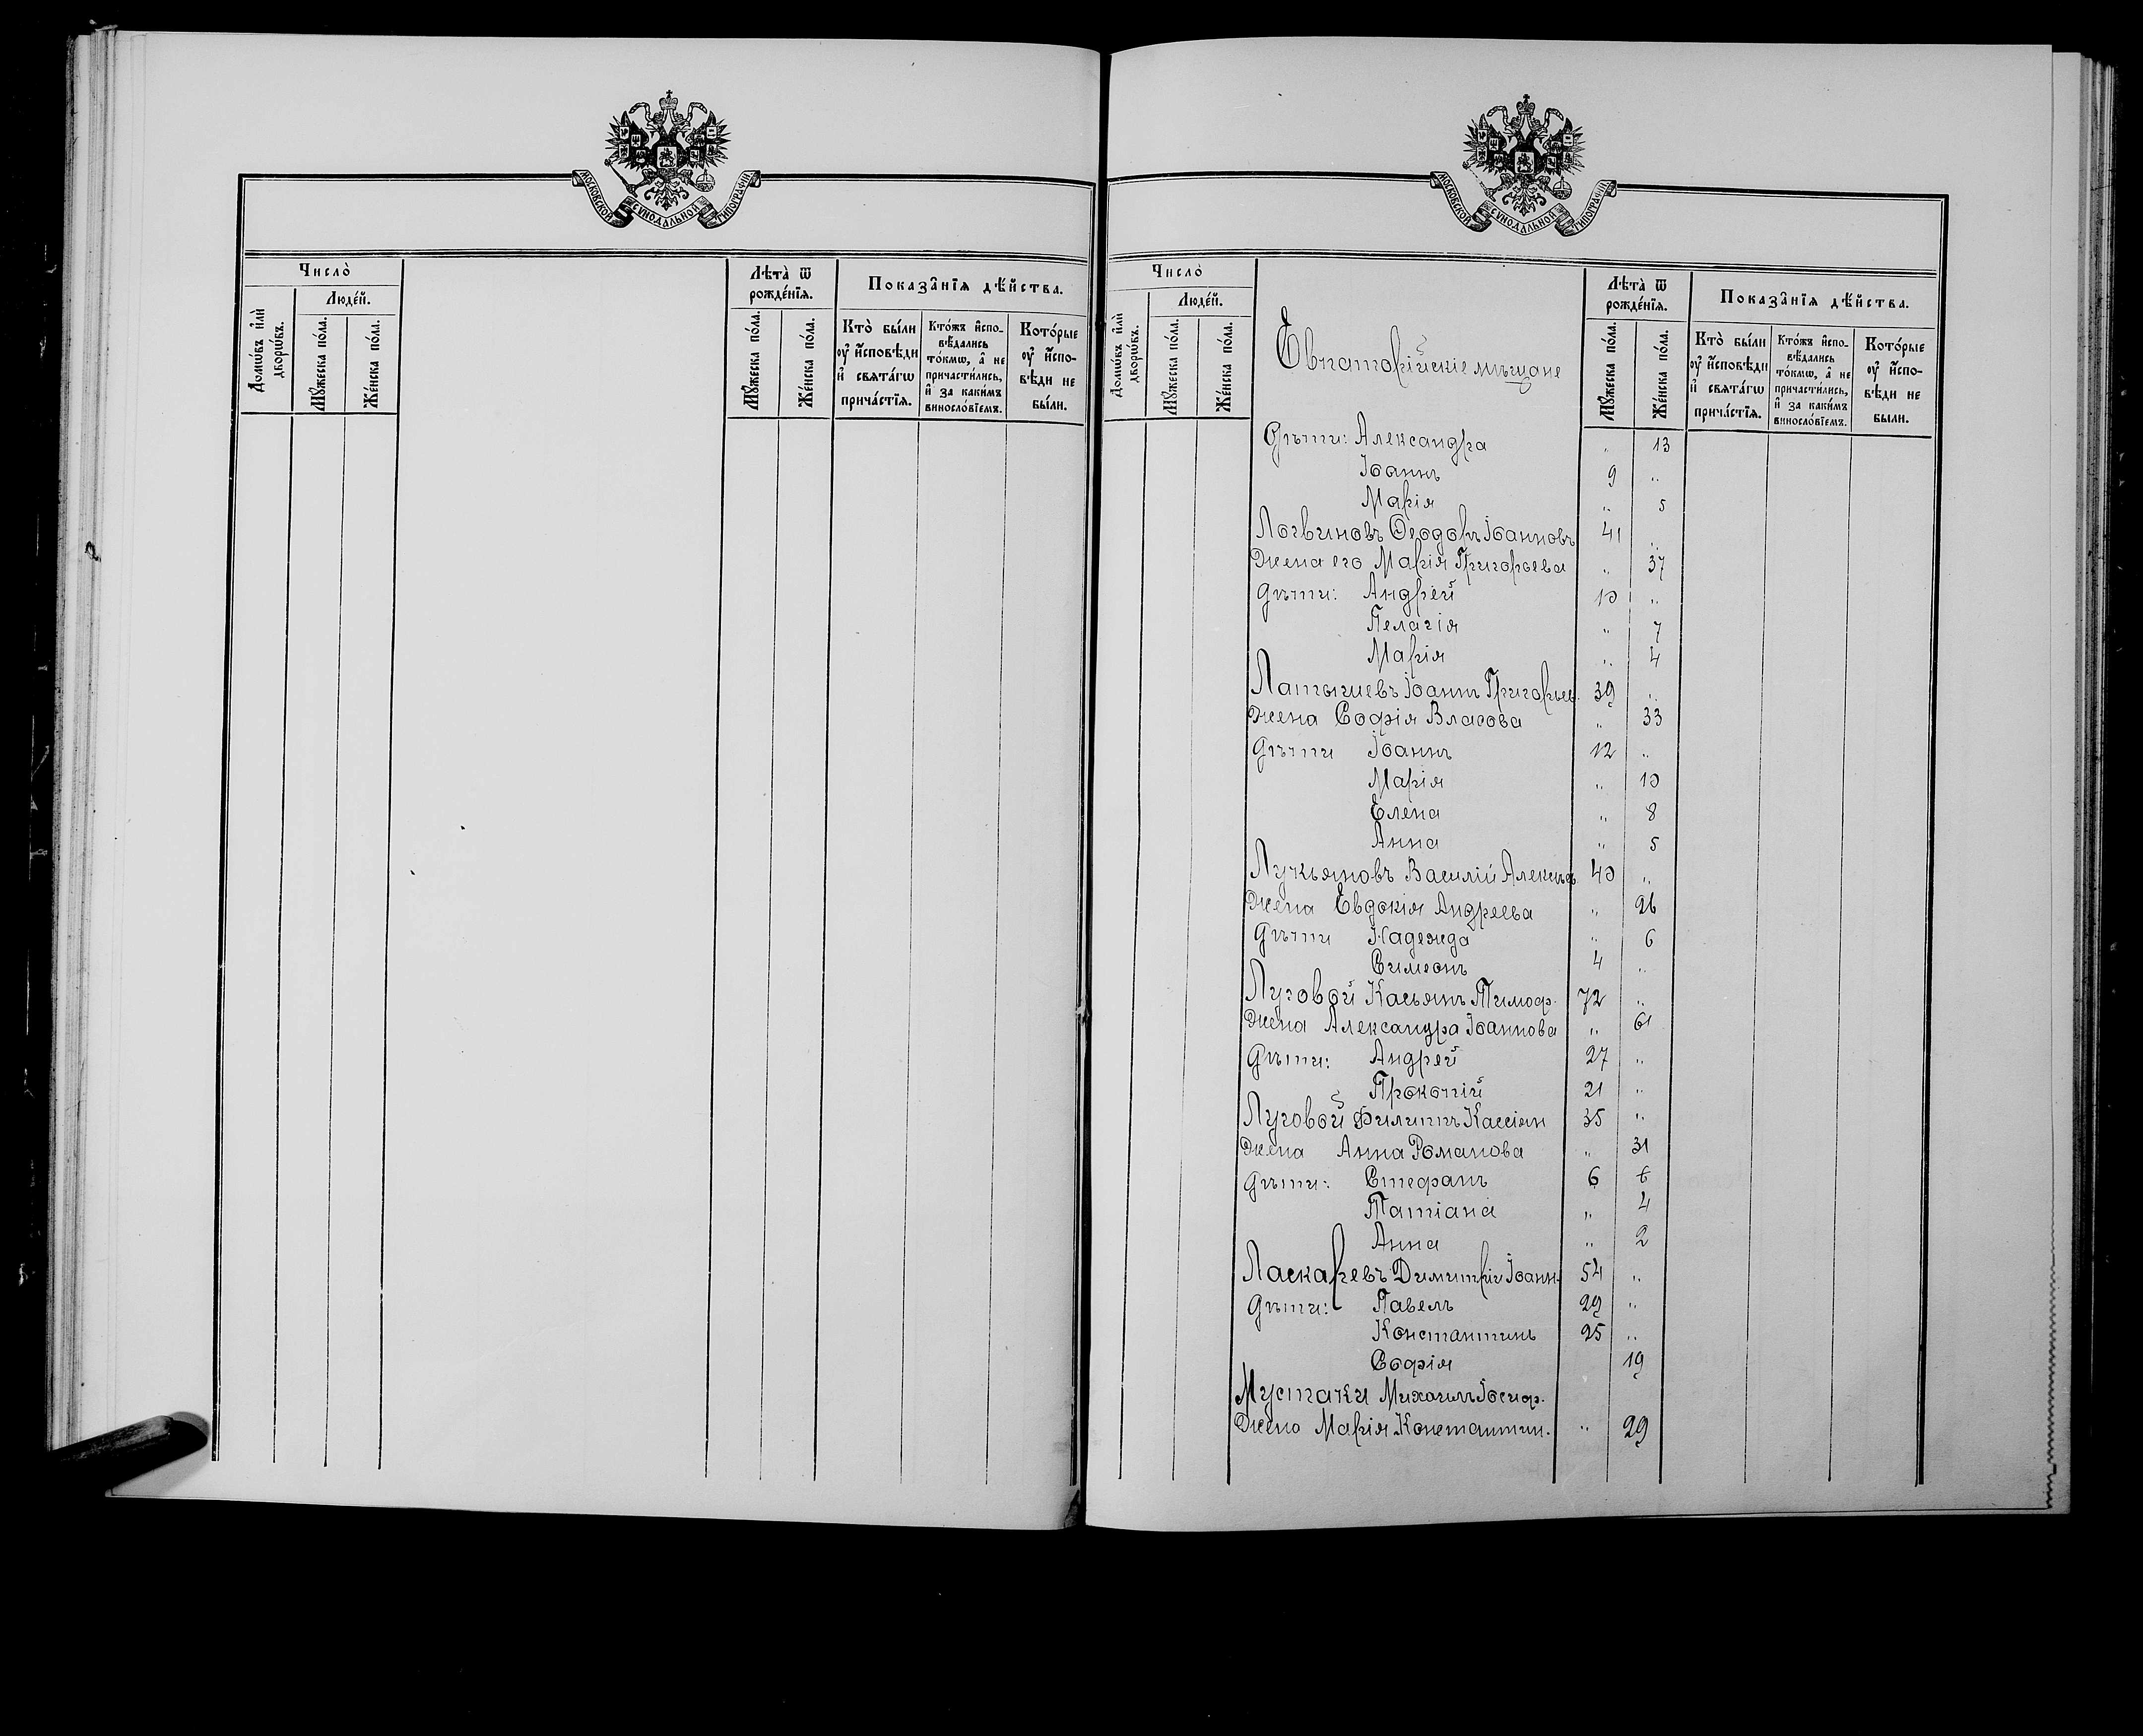 МОСКОВСКОЙ СУНОДАЛЬНОЙ ТИПОГРАФІИ
Число̀
Домѡ́въ и҆лѝ дворѡ́въ.
Люде́й.
Мꙋ́жеска по́ла.
Же́нска по́ла.
Лѣта̀ ѿ рожде́нїѧ.
Мꙋ́жеска по́ла.
Же́нска по́ла.
Показа̑нїѧ дѣ́йства.
Кто̀ бы́ли оу҆ и҆сповѣ́ди и҆ свѧта́гѡ прича́стїѧ.
Кто́жъ и҆сповѣ́дались то́кмѡ, а҆ не причасти́лись, и҆ за каки́мъ винослóвїемъ.
Кото́рые оу҆ и҆сповѣ́ди не бы́ли.
МОСКОВСКОЙ СУНОДАЛЬНОЙ ТИПОГРАФІИ
Число̀
Домѡ́въ и҆лѝ дворѡ́въ.
Люде́й.
Мꙋ́жеска по́ла.
Же́нска по́ла.
Евпаторійскіе мѣщане
Лѣта̀ ѿ рожде́нїѧ.
Мꙋ́жеска по́ла.
Же́нска по́ла.
Показа̑нїѧ дѣ́йства.
Кто̀ бы́ли оу҆ и҆сповѣ́ди и҆ свѧта́гѡ прича́стїѧ.
Кто́жъ и҆сповѣ́дались то́кмѡ, а҆ не причасти́лись, и҆ за каки́мъ винослóвїемъ.
Кото́рые оу҆ и҆сповѣ́ди не были.
Дѣти: Александра " 13
Іоаннъ 9 "
Марія " 5
Логвиновъ Ѳеодоръ Іоанновъ 41 "
Жена его Марія Григорьева " 37
Дѣти: Андрей 10 "
Пелагія " 7
Марія " 4
Латышевъ Іоаннъ Григорьев. 39 "
Жена Софія Власова " 33
Дѣти Іоаннъ 12 "
Марія " 10
Елена " 8
Анна " 5
Лукьяновъ Василій Алексѣев 40 "
Жена Евдокія Андреева " 26
Дѣти Надежда " 6
Симеонъ 4 "
Луговой Касьянъ Тимоф. 72 "
Жена Александра Іоаннова " 61
Дѣти: Андрей 27 "
Прокопій 21 "
Луговой Филиппъ Кассіан 35 "
Жена Анна Романова " 31
Дѣти: Стефанъ 6 6
Татіана " 4
Анна " 2
Ласкаревъ Димитрій Іоанн. 54 "
Дѣти: Павелъ 29 "
Константинъ 25 "
Софія 19
Мустаки Михаилъ Іосиф.
Жена Марія Константин. " 29